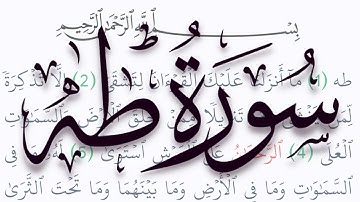 بِسْمِ اللَّهِ الرَّحْمَٰنِ الرَّحِيمِ
سُورَةُ طٰهٰ
طه (1) مَا أَنزَلْنَا عَلَيْكَ الْقُرْءَانَ لِتَشْقَىٰ (2) إِلَّا تَذْكِرَةً
لِمَن تَنزِيلًا خَلَقَ الْأَرْضَ وَالسَّمَٰوَٰتِ
الْعُلَى (4) الرَّحْمَٰنُ عَلَى الْعَرْشِ اسْتَوَىٰ (5) لَهُ مَا فِى
السَّمَٰوَٰتِ وَمَا فِى الْأَرْضِ وَمَا بَيْنَهُمَا وَمَا تَحْتَ الثَّرَىٰ